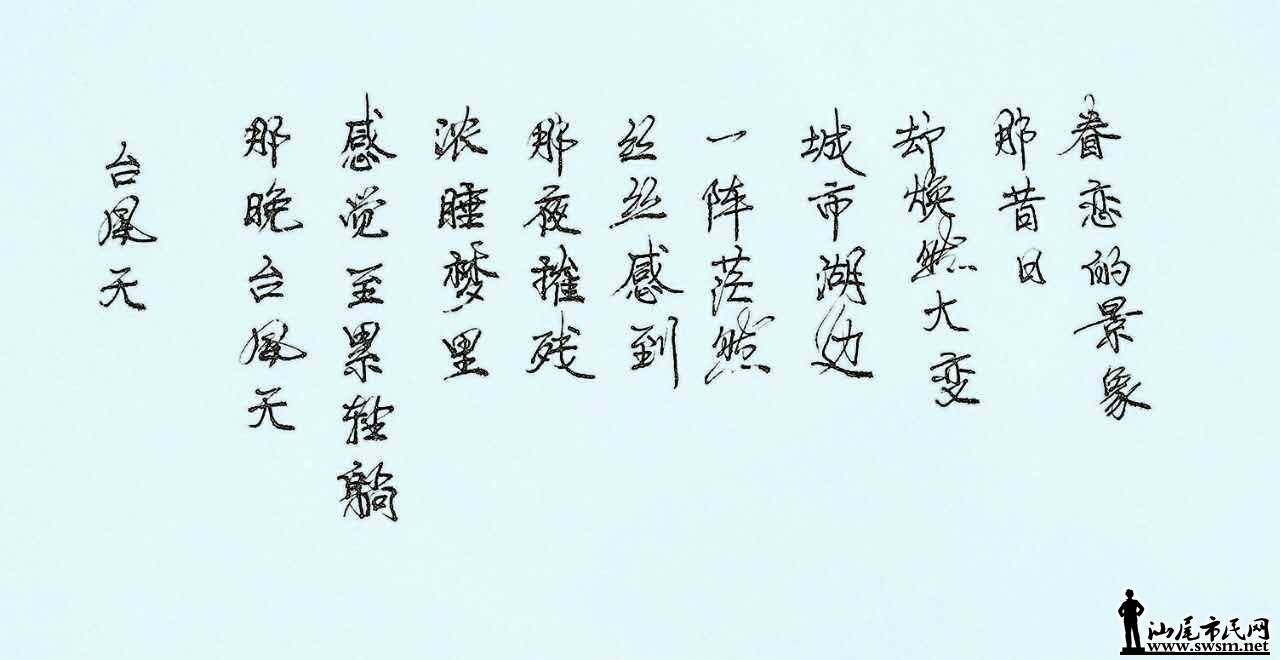 台风天
那晚台风天
感觉至累轻躺
浓睡梦里
那夜摧残
丝丝感到
一阵茫然
城市湖边
却焕然大变
那昔日
眷恋的景象
汕尾市民网
www.swsm.net